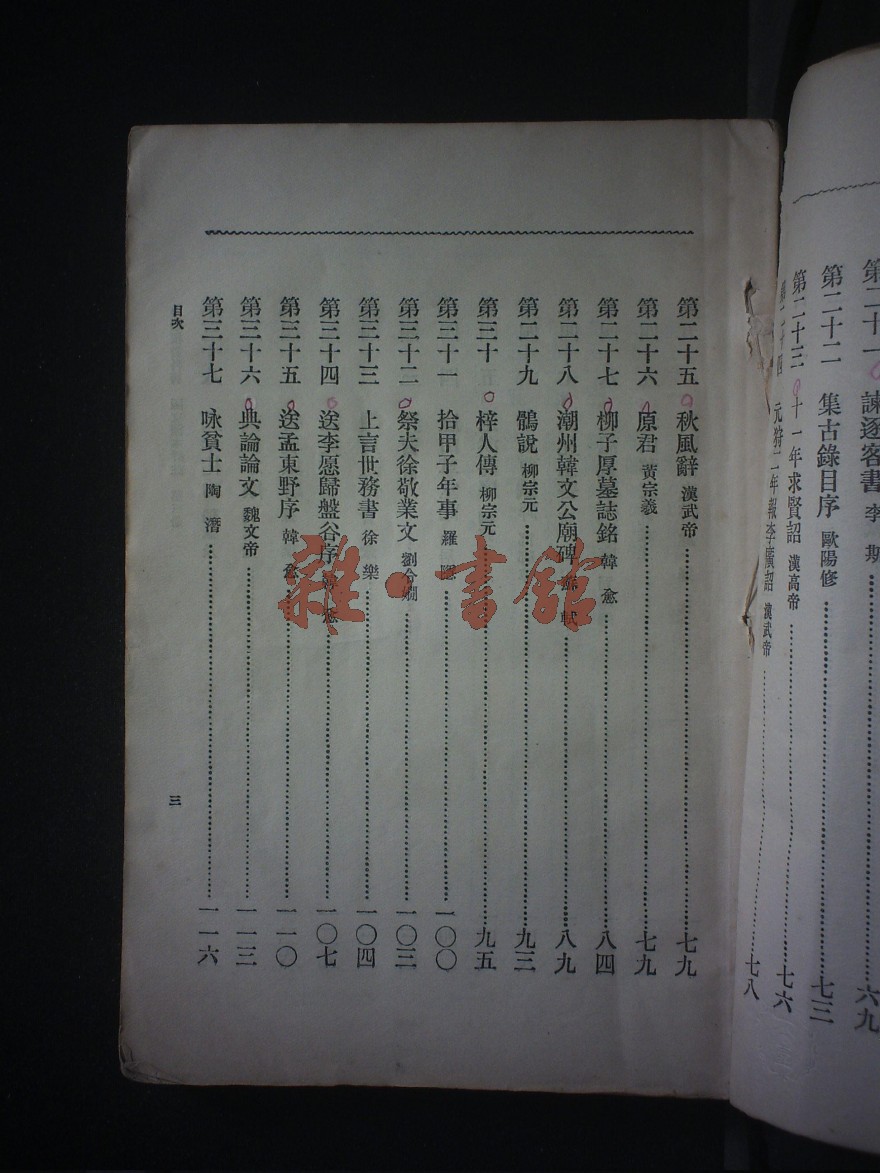 第二十一 諫逐客書 李斯 六九
第二十二 集古錄目序 歐陽修 七三
第二十三 十一年求賢詔 漢高帝 七六
第二十四 元狩二年報李廣詔 漢武帝 七八
第二十五 秋風辭 漢武帝 七九
第二十六 原君 黃宗羲 七九
第二十七 柳子厚墓誌銘 韓愈 八四
第二十八 潮州韓文公廟碑 蘇軾 八九
第二十九 鶻說 柳宗元 九三
第三十 梓人傳 柳宗元 九五
第三十一 拾甲子年事 羅隱 一〇〇
第三十二 祭夫徐敬業文 劉令嫺 一〇三
第三十三 上言世務書 徐樂 一〇四
第三十四 送李愿歸盤谷序 韓愈 一〇七
第三十五 送孟東野序 韓愈 一一〇
第三十六 典論論文 魏文帝 一一三
第三十七 咏貧士 陶潛 一一六
目次
三
雜·書館